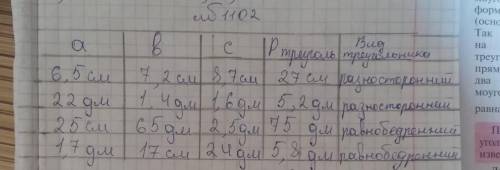 №1102
a в с P треуголь Вид треугольника
6,5см 7,2см 8,7см 27см разносторонний
22дм 1,4дм 1,6дм 5,2дм разносторонний
25см 65дм 2,5дм 75 дм равнобедренний
1,7дм 17см 24дм 5,8дм равнобедренний
форм
(осно
Так
на
треуг
прям
два
моуго
равна
П
уголь
извес